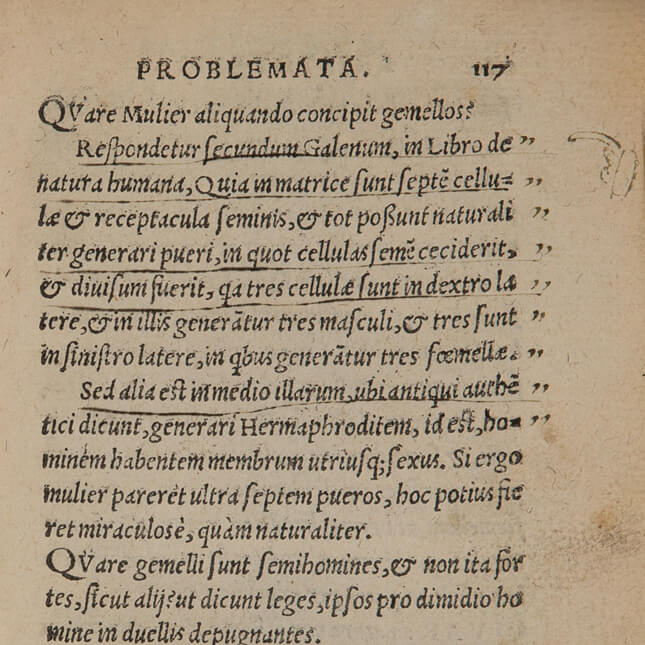 PROBLEMATA. 117
QVare Mulier aliquando concipit gemellos?
Respondetur secundum Galenum, in Libro de „
natura humana, Quia in matrice sunt septē cellu= „
læ & receptacula seminis, & tot possunt naturali „
ter generari pueri, in quot cellulas semē ceciderit, „
& diuisum fuerit, qa tres cellulæ sunt in dextro la „
tere, & in illis generātur tres masculi, & tres sunt „
in sinistro latere, in qbus generātur tres fœmellæ. „
Sed alia est in medio illarum, ubi antiqui authē „
tici dicunt, generari Hermaphroditem, id est, ho= „
minem habentem membrum utriusq; sexus. Si ergo
mulier pareret ultra septem pueros, hoc potius fie
ret miraculosè, quàm naturaliter.
QVare gemelli sunt semihomines, & non ita for
tes, sicut alij? ut dicunt leges, ipsos pro dimidio ho
mine in duellis depugnantes.